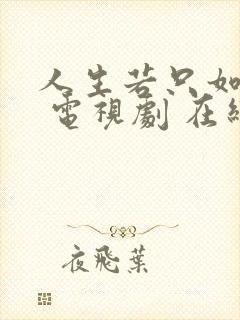 人生若只如
電視劇 在
夜飛葉